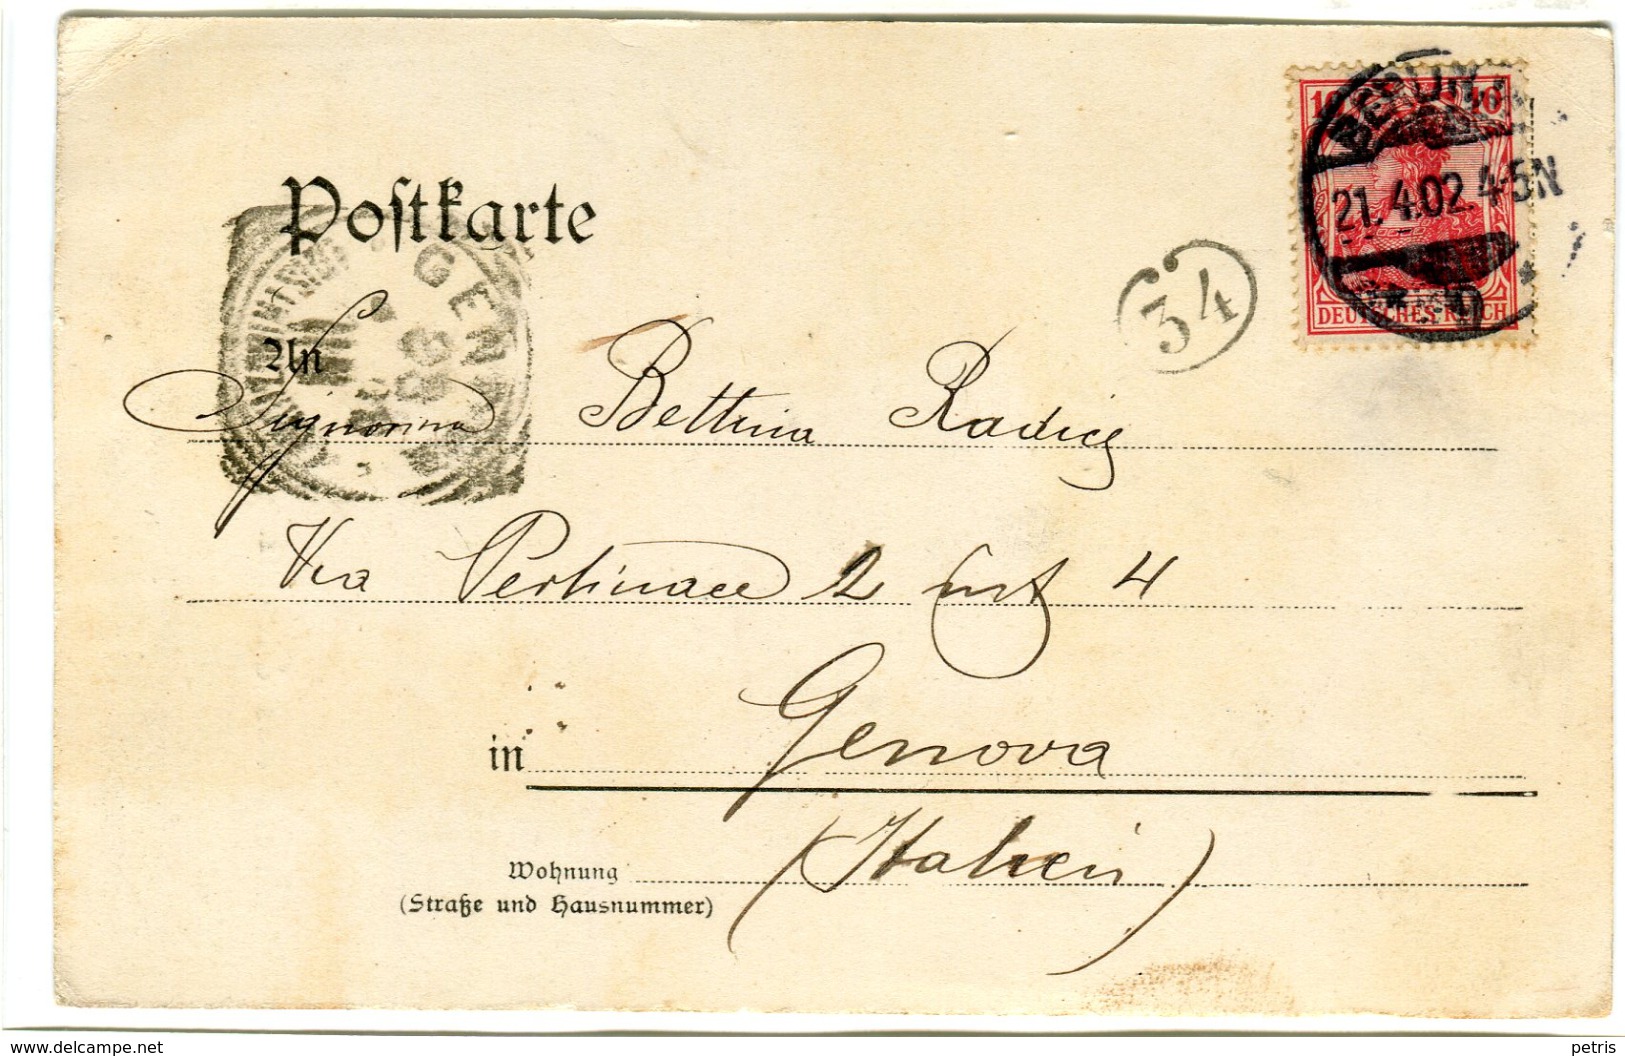 10 10
BERLIN
21.4.02. 4-5N
DEUTSCHES REICH
34
Postkarte
GEN
An
Signorina Bettina Radice
Via Pertinace 2 int 4
in Genova
(Italien)
Wohnung
(Straße und Hausnummer)
www.delcampe.net
petris